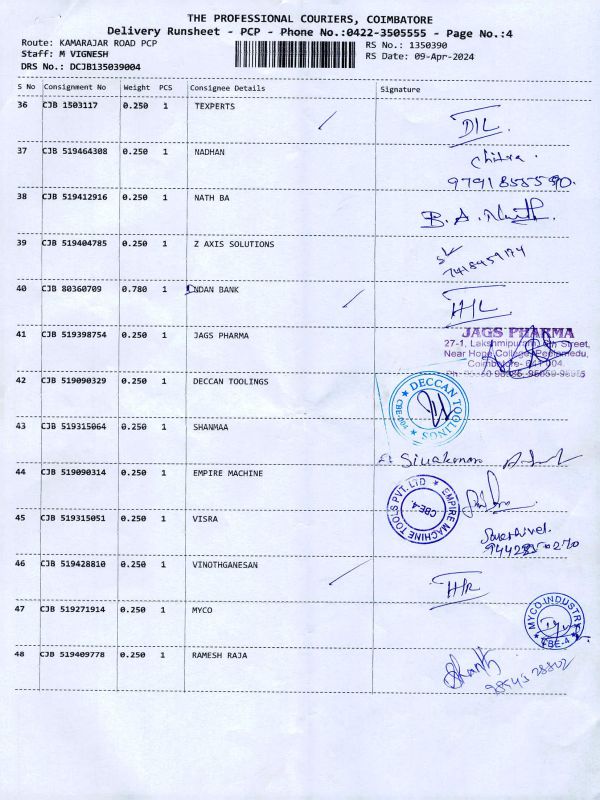 THE PROFESSIONAL COURIERS, COIMBATORE
Delivery Runsheet - PCP - Phone No.:0422-3505555 - Page No.:4
Route: KAMARAJAR ROAD PCP
Staff: M VIGNESH
DRS No.: DCJB135039004
RS No.: 1350390
RS Date: 09-Apr-2024
S No Consignment No Weight PCS Consignee Details Signature
36 CJB 1503117 0.250 1 TEXPERTS
DIL
37 CJB 519464308 0.250 1 NADHAN
Chitra.
38 CJB 519412916 0.250 1 NATH BA
B. A. Nath.
39 CJB 519404785 0.250 1 Z AXIS SOLUTIONS
40 CJB 80360709 0.780 1 INDAN BANK
41 CJB 519398754 0.250 1 JAGS PHARMA
JAGS PHARMA
27-1, Lakshmipuram, Street,
Near Hope College, Peelamedu,
Coimbatore- 641 004.
42 CJB 519090329 0.250 1 DECCAN TOOLINGS
DECCAN TOOLINGS
43 CJB 519315064 0.250 1 SHANMAA
Sivakumar
44 CJB 519090314 0.250 1 EMPIRE MACHINE
EMPIRE MACHINE TOOLS PVT. LTD
CBE-4.
45 CJB 519315051 0.250 1 VISRA
46 CJB 519428810 0.250 1 VINOTHGANESAN
47 CJB 519271914 0.250 1 MYCO
MYCO INDUSTRY
CBE-4
48 CJB 519409778 0.250 1 RAMESH RAJA